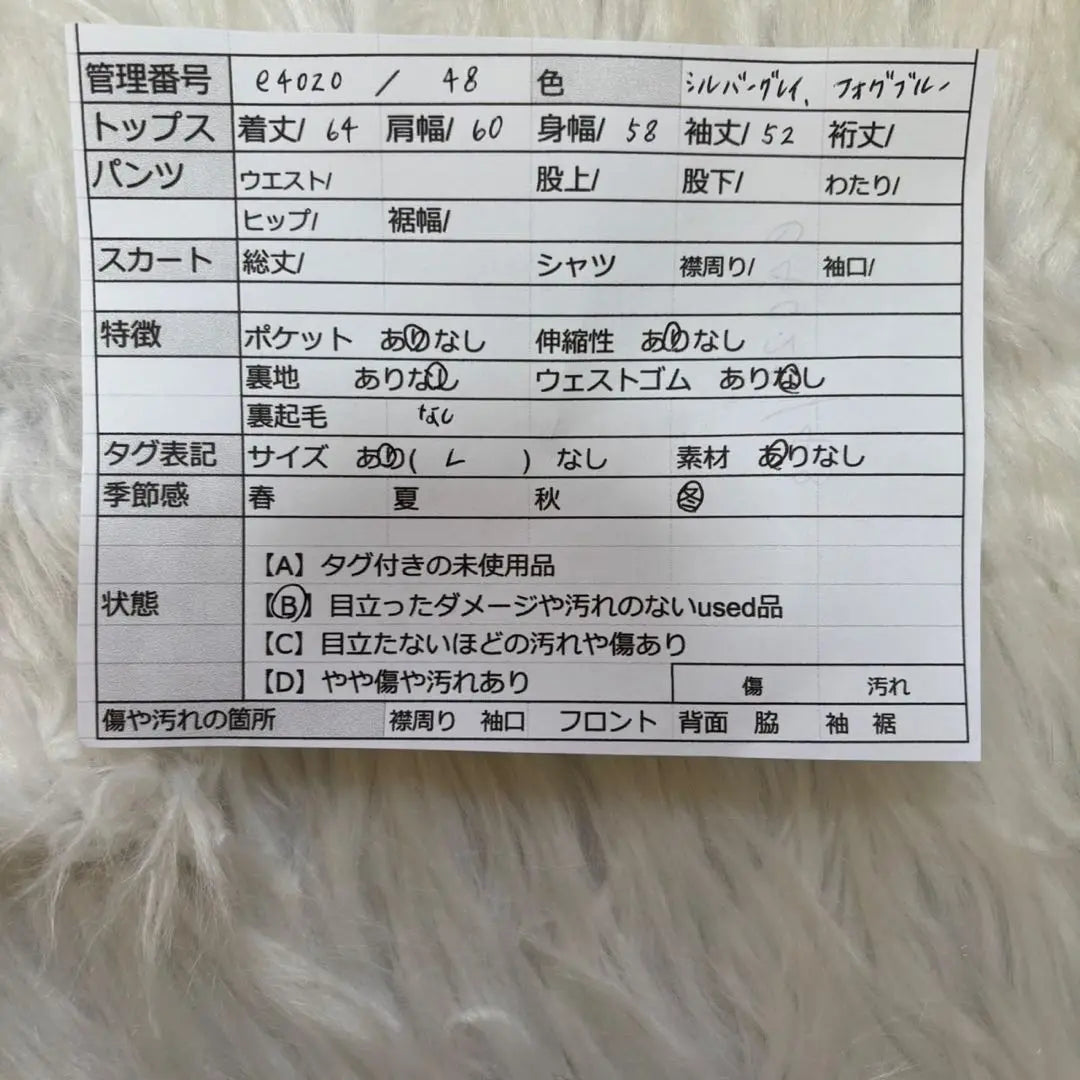 管理番号 e4020 / 48 色 シルバーグレイ、フォグブルー
トップス 着丈/ 64 肩幅/ 60 身幅/ 58 袖丈/ 52 裄丈/
パンツ ウエスト/ 股上/ 股下/ わたり/
ヒップ/ 裾幅/
スカート 総丈/ シャツ 襟周り/ 袖口/
特徴 ポケット ありなし 伸縮性 ありなし
裏地 ありなし ウェストゴム ありなし
裏起毛 なし
タグ表記 サイズ あり( L ) なし 素材 ありなし
季節感 春 夏 秋 冬
【A】タグ付きの未使用品
状態 【B】目立ったダメージや汚れのないused品
【C】目立たないほどの汚れや傷あり
【D】やや傷や汚れあり 傷 汚れ
傷や汚れの箇所 襟周り 袖口 フロント 背面 脇 袖 裾